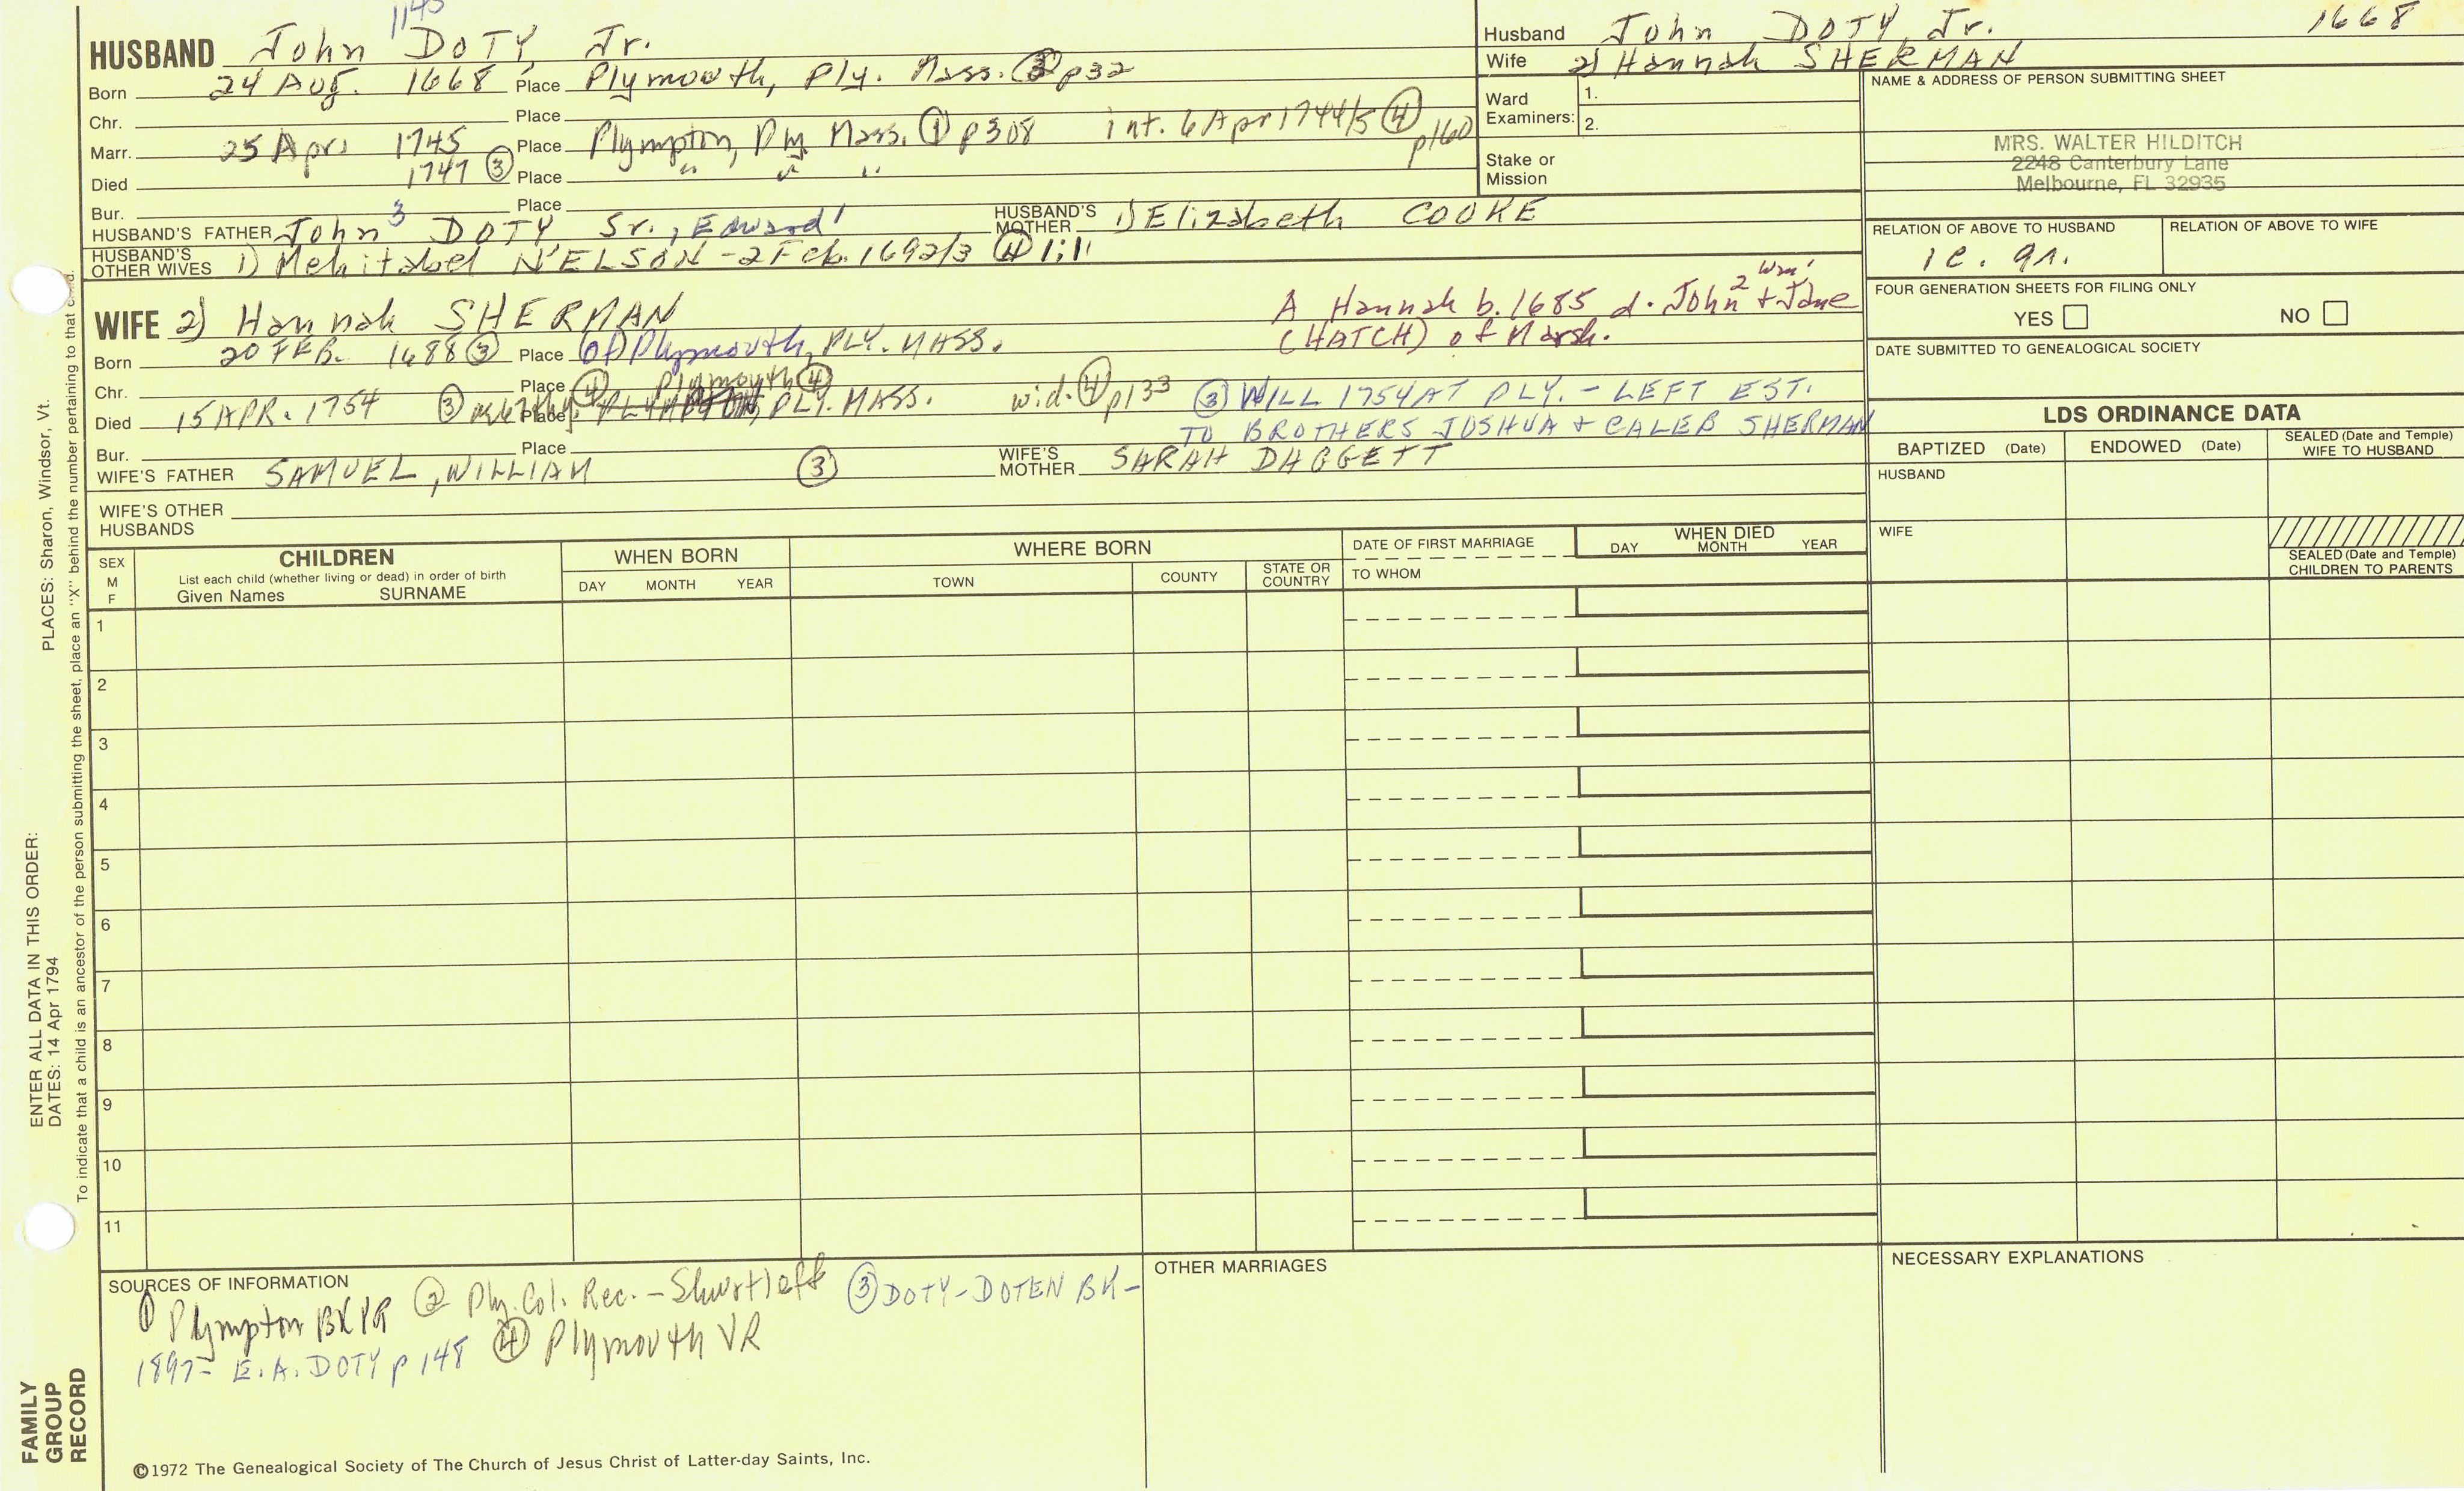 1145
HUSBAND John DOTY, Jr.
Born 24 Aug. 1668 Place Plymouth, Ply. Mass. p32
Chr. Place
Marr. 25 Apr. 1745 Place Plympton, Ply Mass. ① p308 int. 6 Apr 1744/5 ④ p160
Died 1747 ③ Place " " "
Bur. Place
HUSBAND'S FATHER John 3 DOTY Sr., Edward 1 HUSBAND'S MOTHER 1) Elizabeth COOKE
HUSBAND'S OTHER WIVES 1) Mehitabel NELSON - 2 Feb. 1692/3 ④ 1:11
Husband John DOTY, Jr. 1668
Wife 2) Hannah SHERMAN
Ward Examiners: 1.
2.
Stake or Mission
NAME & ADDRESS OF PERSON SUBMITTING SHEET
MRS. WALTER HILDITCH
2248 Canterbury Lane
Melbourne, FL 32935
RELATION OF ABOVE TO HUSBAND RELATION OF ABOVE TO WIFE
FOUR GENERATION SHEETS FOR FILING ONLY
YES NO
DATE SUBMITTED TO GENEALOGICAL SOCIETY
WIFE 2) Hannah SHERMAN
A Hannah b. 1685 d. John 2 Wm 1 + Jane
(HATCH) of Marsh.
Born 20 FEB. 1688 ③ Place (of) Plymouth, PLY. MASS.
Chr. Place ④ Plymouth ④
Died 15 APR. 1754 ③ Place PLYMPTON, PLY. MASS. wid. ④ p133 ③ WILL 1754 AT PLY. - LEFT EST.
TO BROTHERS JOSHUA + CALEB SHERMAN
Bur. Place
WIFE'S FATHER SAMUEL, WILLIAM ③ WIFE'S MOTHER SARAH DAGGETT
WIFE'S OTHER HUSBANDS
LDS ORDINANCE DATA
BAPTIZED (Date) ENDOWED (Date) SEALED (Date and Temple) WIFE TO HUSBAND
HUSBAND
WIFE
SEALED (Date and Temple) CHILDREN TO PARENTS
SEX M F CHILDREN WHEN BORN WHERE BORN DATE OF FIRST MARRIAGE WHEN DIED
List each child (whether living or dead) in order of birth
Given Names SURNAME DAY MONTH YEAR TOWN COUNTY STATE OR COUNTRY TO WHOM DAY MONTH YEAR
1
2
3
4
5
6
7
8
9
10
11
SOURCES OF INFORMATION
① Plympton BK VR ② Ply. Col. Rec. - Shurtleff ③ DOTY-DOTEN BK-
1897- E.A. DOTY p 148 ④ Plymouth VR
OTHER MARRIAGES
NECESSARY EXPLANATIONS
©1972 The Genealogical Society of The Church of Jesus Christ of Latter-day Saints, Inc.
FAMILY GROUP RECORD
ENTER ALL DATA IN THIS ORDER:
DATES: 14 Apr 1794
PLACES: Sharon, Windsor, Vt.
To indicate that a child is an ancestor of the person submitting the sheet, place an "X" behind the number pertaining to that child.